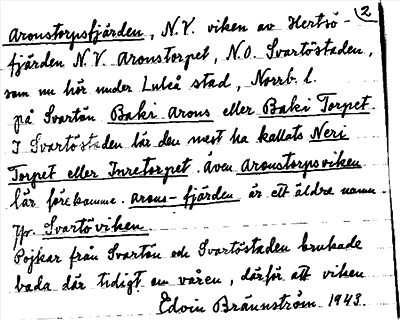 2
Aronstorpsfjärden, N.V. viken av Hertsö-
fjärden N.V. Aronstorpet, N.O. Svartöstaden,
som nu hör under Luleå stad, Norrb. l.
på Svartön Baki Arons eller Baki Torpet.
I Svartöstaden lär den mest ha kallats Neri
Torpet eller Inretorpet. Även Aronstorpsviken
lär förekomma. Arons-fjärden är ett äldre namn.
Jfr. Svartöviken.
Pojkar från Svartön och Svartöstaden brukade
bada där tidigt om våren, därför att viken
Edvin Brännström. 1943.